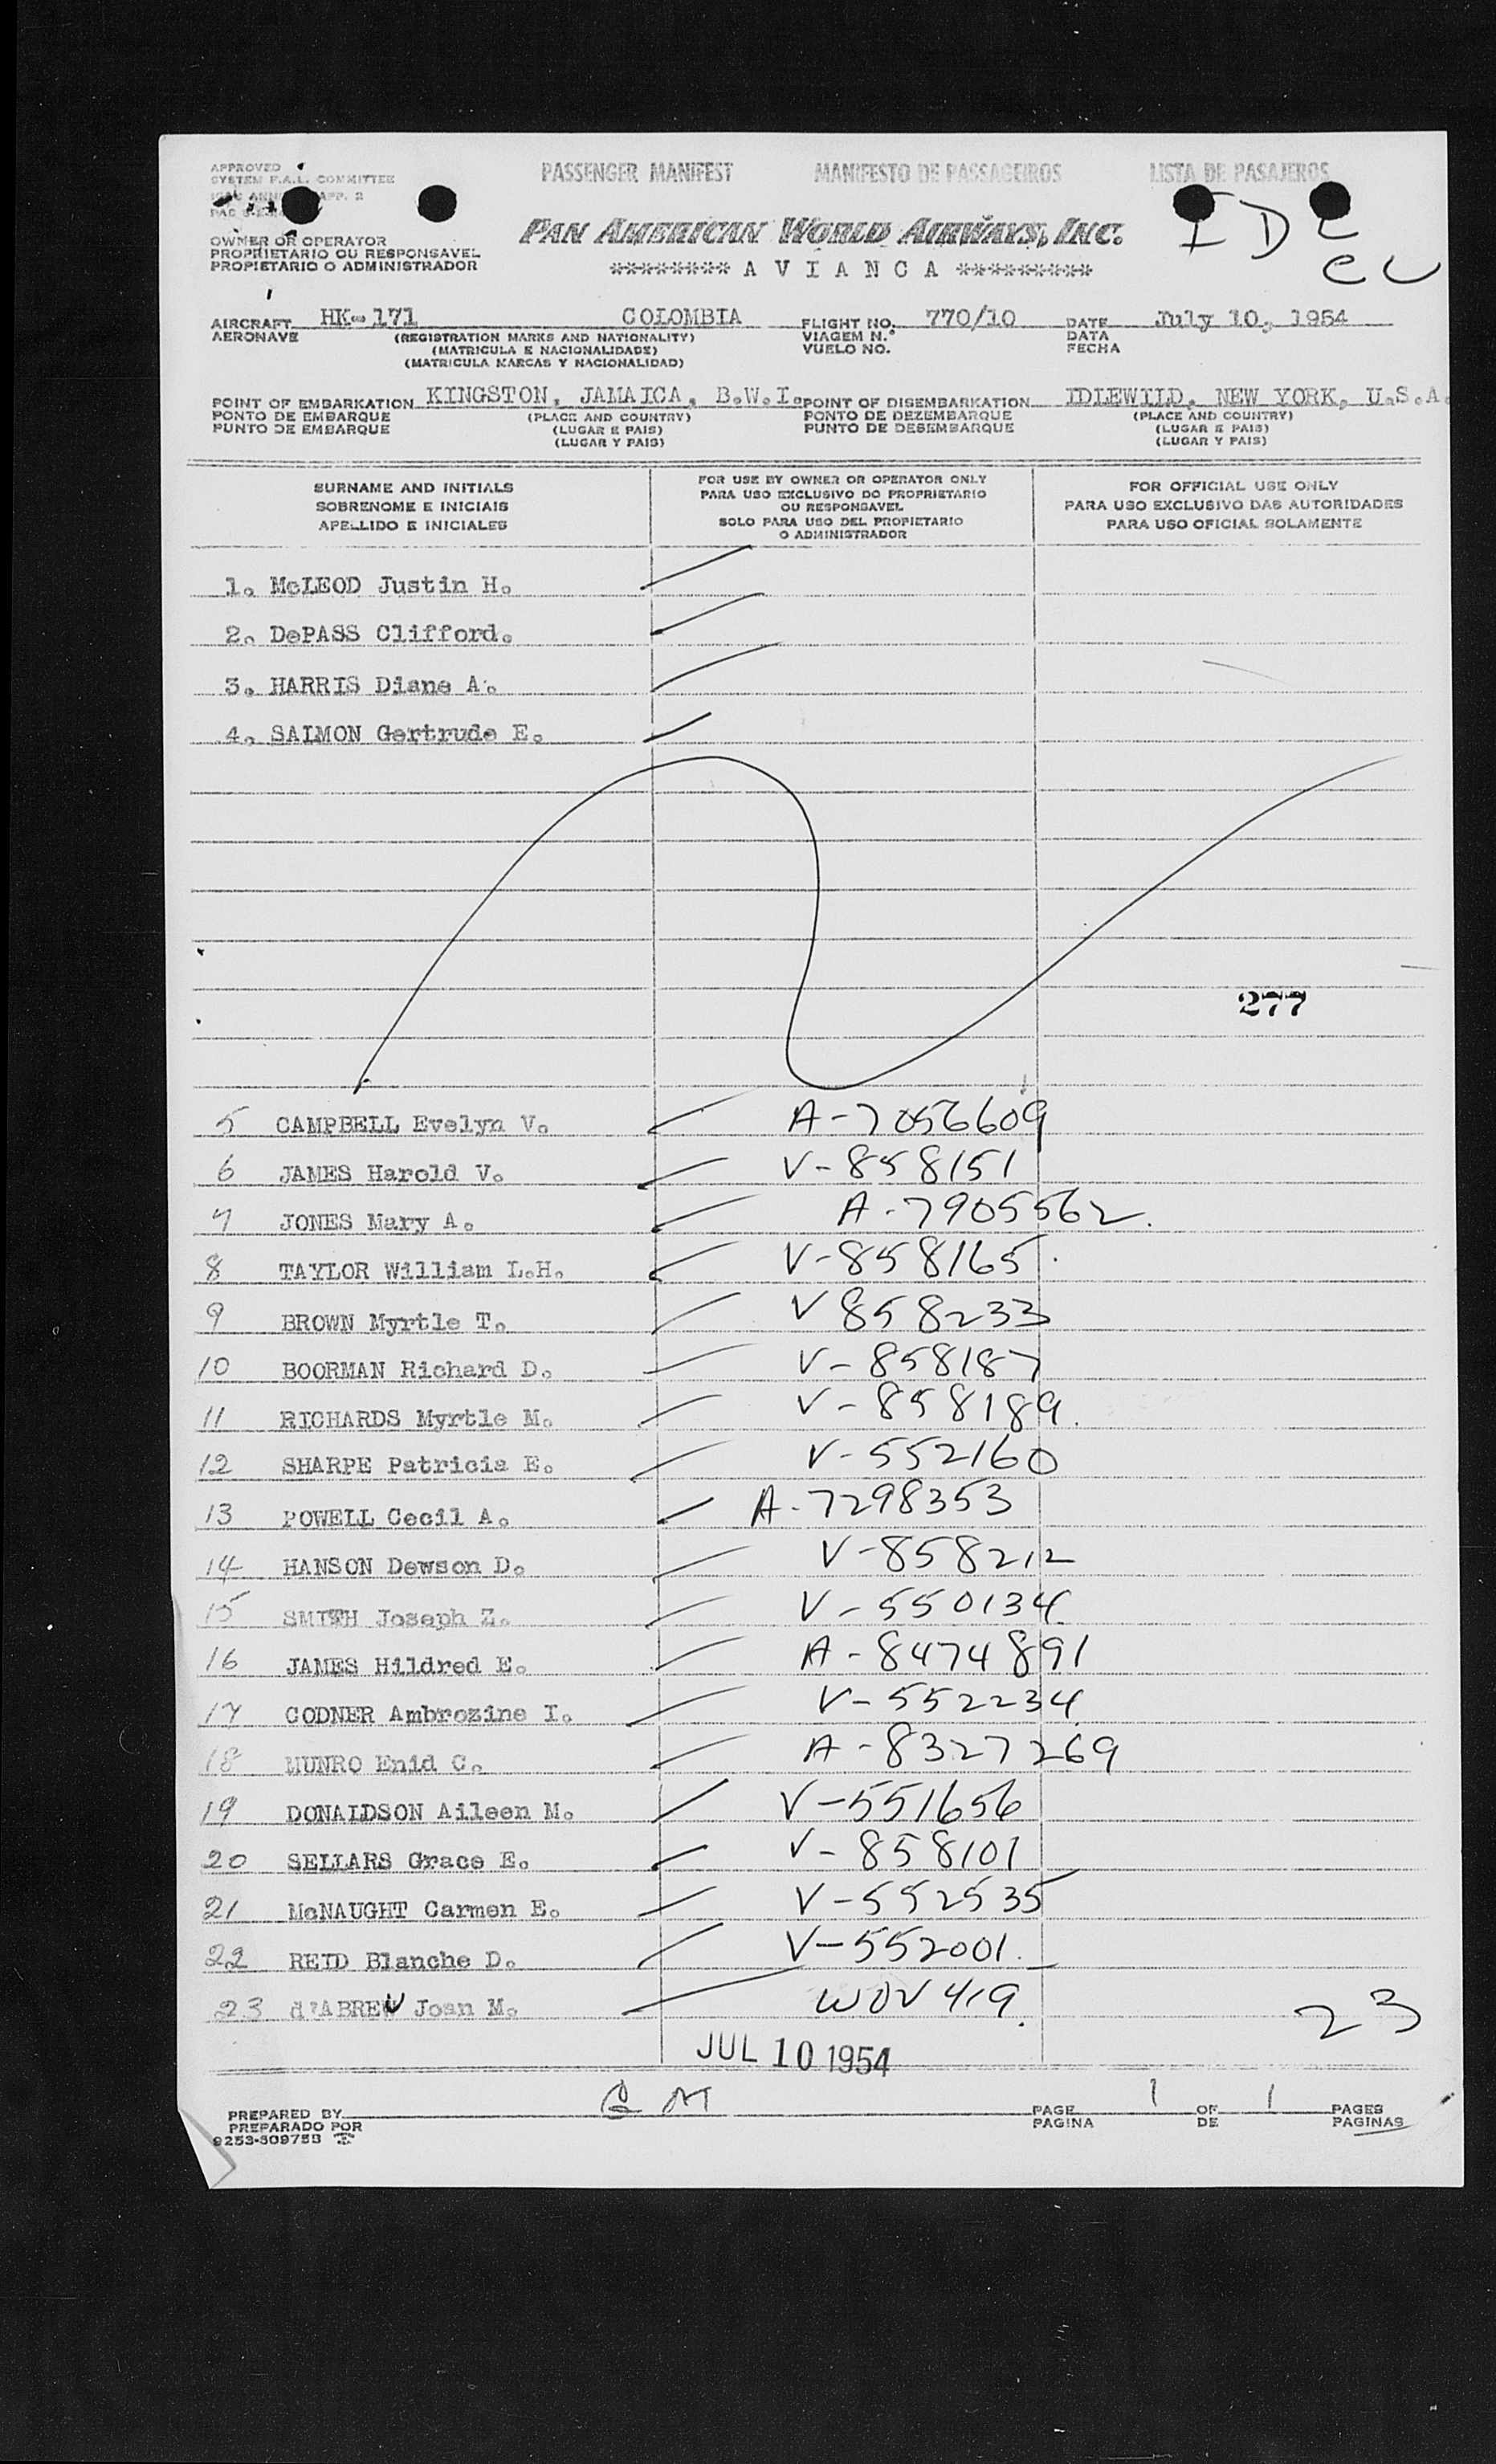 APPROVED
SYSTEM F.A.L. COMMITTEE
PASSENGER MANIFEST MANIFESTO DE PASSAGEIROS LISTA DE PASAJEROS
OWNER OR OPERATOR
PROPRIETARIO OU RESPONSAVEL
PROPIETARIO O ADMINISTRADOR
PAN AMERICAN WORLD AIRWAYS, INC.
******** A V I A N C A *********
I D L
AIRCRAFT HK-171 COLOMBIA FLIGHT NO. 770/10 DATE July 10, 1954
AERONAVE (REGISTRATION MARKS AND NATIONALITY) VIAGEM N.° DATA
(MATRICULA E NACIONALIDADE) VUELO NO. FECHA
(MATRICULA MARCAS Y NACIONALIDAD)
POINT OF EMBARKATION KINGSTON, JAMAICA, B.W.I. POINT OF DISEMBARKATION IDLEWILD, NEW YORK, U.S.A.
PONTO DE EMBARQUE (PLACE AND COUNTRY) PONTO DE DEZEMBARQUE (PLACE AND COUNTRY)
PUNTO DE EMBARQUE (LUGAR E PAIS) PUNTO DE DESEMBARQUE (LUGAR E PAIS)
(LUGAR Y PAIS) (LUGAR Y PAIS)
SURNAME AND INITIALS
SOBRENOME E INICIAIS
APELLIDO E INICIALES
FOR USE BY OWNER OR OPERATOR ONLY
PARA USO EXCLUSIVO DO PROPRIETARIO
OU RESPONSAVEL
SOLO PARA USO DEL PROPIETARIO
O ADMINISTRADOR
FOR OFFICIAL USE ONLY
PARA USO EXCLUSIVO DAS AUTORIDADES
PARA USO OFICIAL SOLAMENTE
1. McLEOD Justin H.
2. DePASS Clifford.
3. HARRIS Diane A.
4. SALMON Gertrude E.
277
5 CAMPBELL Evelyn V. A-7056609
6 JAMES Harold V. V-858151
7 JONES Mary A. A-7905562.
8 TAYLOR William L.H. V-858165
9 BROWN Myrtle T. V 858233
10 BOORMAN Richard D. V-858187
11 RICHARDS Myrtle M. V-858189.
12 SHARPE Patricia E. V-552160
13 POWELL Cecil A. A-7298353
14 HANSON Dewson D. V-858212
15 SMITH Joseph Z. V-550134
16 JAMES Hildred E. A-8474891
17 CODNER Ambrozine I. V-552234
18 MUNRO Enid C. A-8327269
19 DONALDSON Aileen M. V-551656
20 SELLARS Grace E. V-858101
21 McNAUGHT Carmen E. V-552535
22 REID Blanche D. V-552001.
23 d'ABREU Joan M. WOV 419.
23
JUL 10 1954
PREPARED BY PAGE 1 OF 1 PAGES
PREPARADO POR PAGINA DE PAGINAS
9253-509753